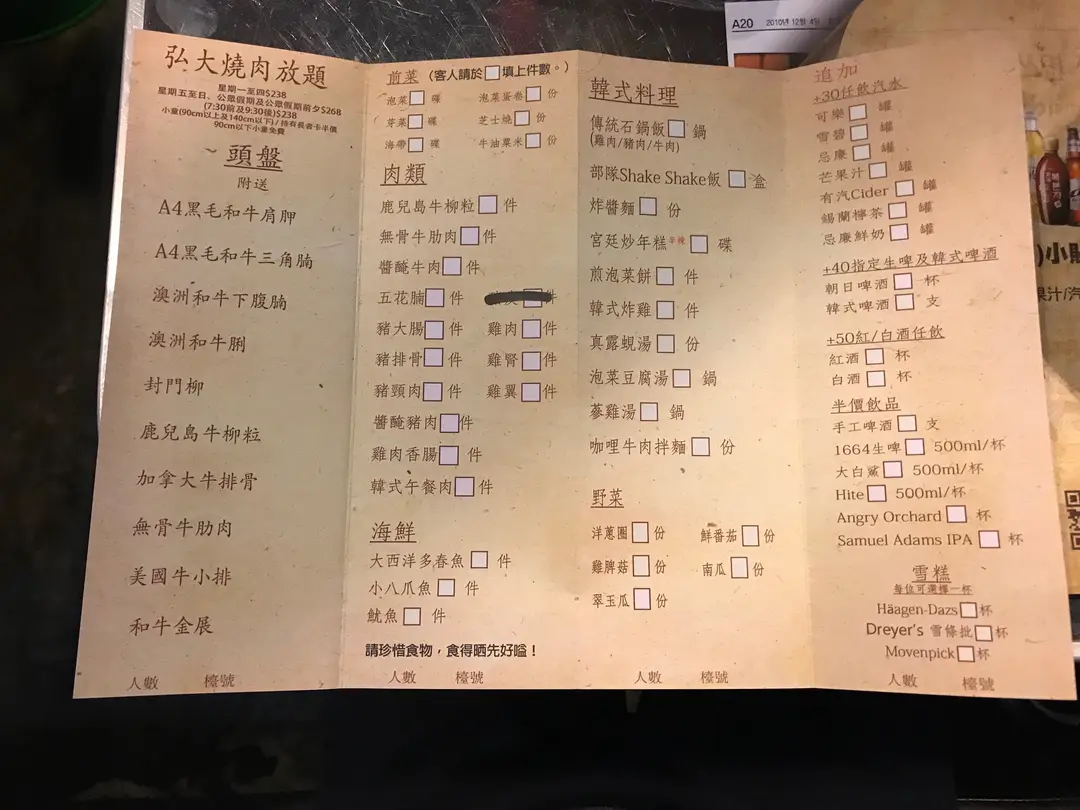 A20 2010年12月4日
弘大燒肉放題
星期一至四$238
星期五至日、公眾假期及公眾假期前夕$268
(7:30前及9:30後)$238
小童(90cm以上及140cm以下)/持有長者卡半價
90cm以下小童免費
頭盤
附送
A4黑毛和牛肩胛
A4黑毛和牛三角腩
澳洲和牛下腹腩
澳洲和牛脷
封門柳
鹿兒島牛柳粒
加拿大牛排骨
無骨牛肋肉
美國牛小排
和牛金展
人數 檯號
前菜 (客人請於□填上件數。)
泡菜□碟 泡菜蛋卷□份
芽菜□碟 芝士燒□份
海帶□碟 牛油粟米□份
肉類
鹿兒島牛柳粒□件
無骨牛肋肉□件
醬醃牛肉□件
五花腩□件 □件
豬大腸□件 雞肉□件
豬排骨□件 雞腎□件
豬頸肉□件 雞翼□件
醬醃豬肉□件
雞肉香腸□件
韓式午餐肉□件
海鮮
大西洋多春魚□件
小八爪魚□件
魷魚□件
請珍惜食物，食得晒先好嗌！
人數 檯號
韓式料理
傳統石鍋飯□鍋
(雞肉/豬肉/牛肉)
部隊Shake Shake飯□盒
炸醬麵□份
宮廷炒年糕辛辣□碟
煎泡菜餅□件
韓式炸雞□件
真露蜆湯□份
泡菜豆腐湯□鍋
蔘雞湯□鍋
咖哩牛肉拌麵□份
野菜
洋蔥圈□份 鮮番茄□份
雞脾菇□份 南瓜□份
翠玉瓜□份
人數 檯號
追加
+30任飲汽水
可樂□罐
雪碧□罐
忌廉□罐
芒果汁□罐
有汽Cider□罐
錫蘭檸茶□罐
忌廉鮮奶□罐
+40指定生啤及韓式啤酒
朝日啤酒□杯
韓式啤酒□支
+50紅/白酒任飲
紅酒□杯
白酒□杯
半價飲品
手工啤酒□支
1664生啤□500ml/杯
大白鯊□500ml/杯
Hite□500ml/杯
Angry Orchard□杯
Samuel Adams IPA□杯
雪糕
每位可選擇一杯
Häagen-Dazs□杯
Dreyer's 雪條批□杯
Movenpick□杯
人數 檯號